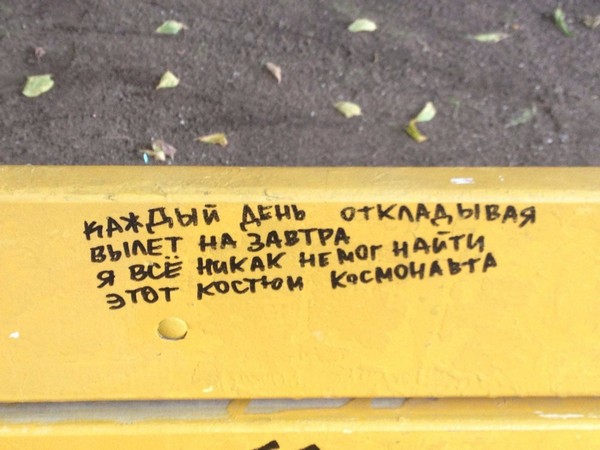 КАЖДЫЙ ДЕНЬ ОТКЛАДЫВАЯ
ВЫЛЕТ НА ЗАВТРА
Я ВСЁ НИКАК НЕ МОГ НАЙТИ
ЭТОТ КОСТЮМ КОСМОНАВТА